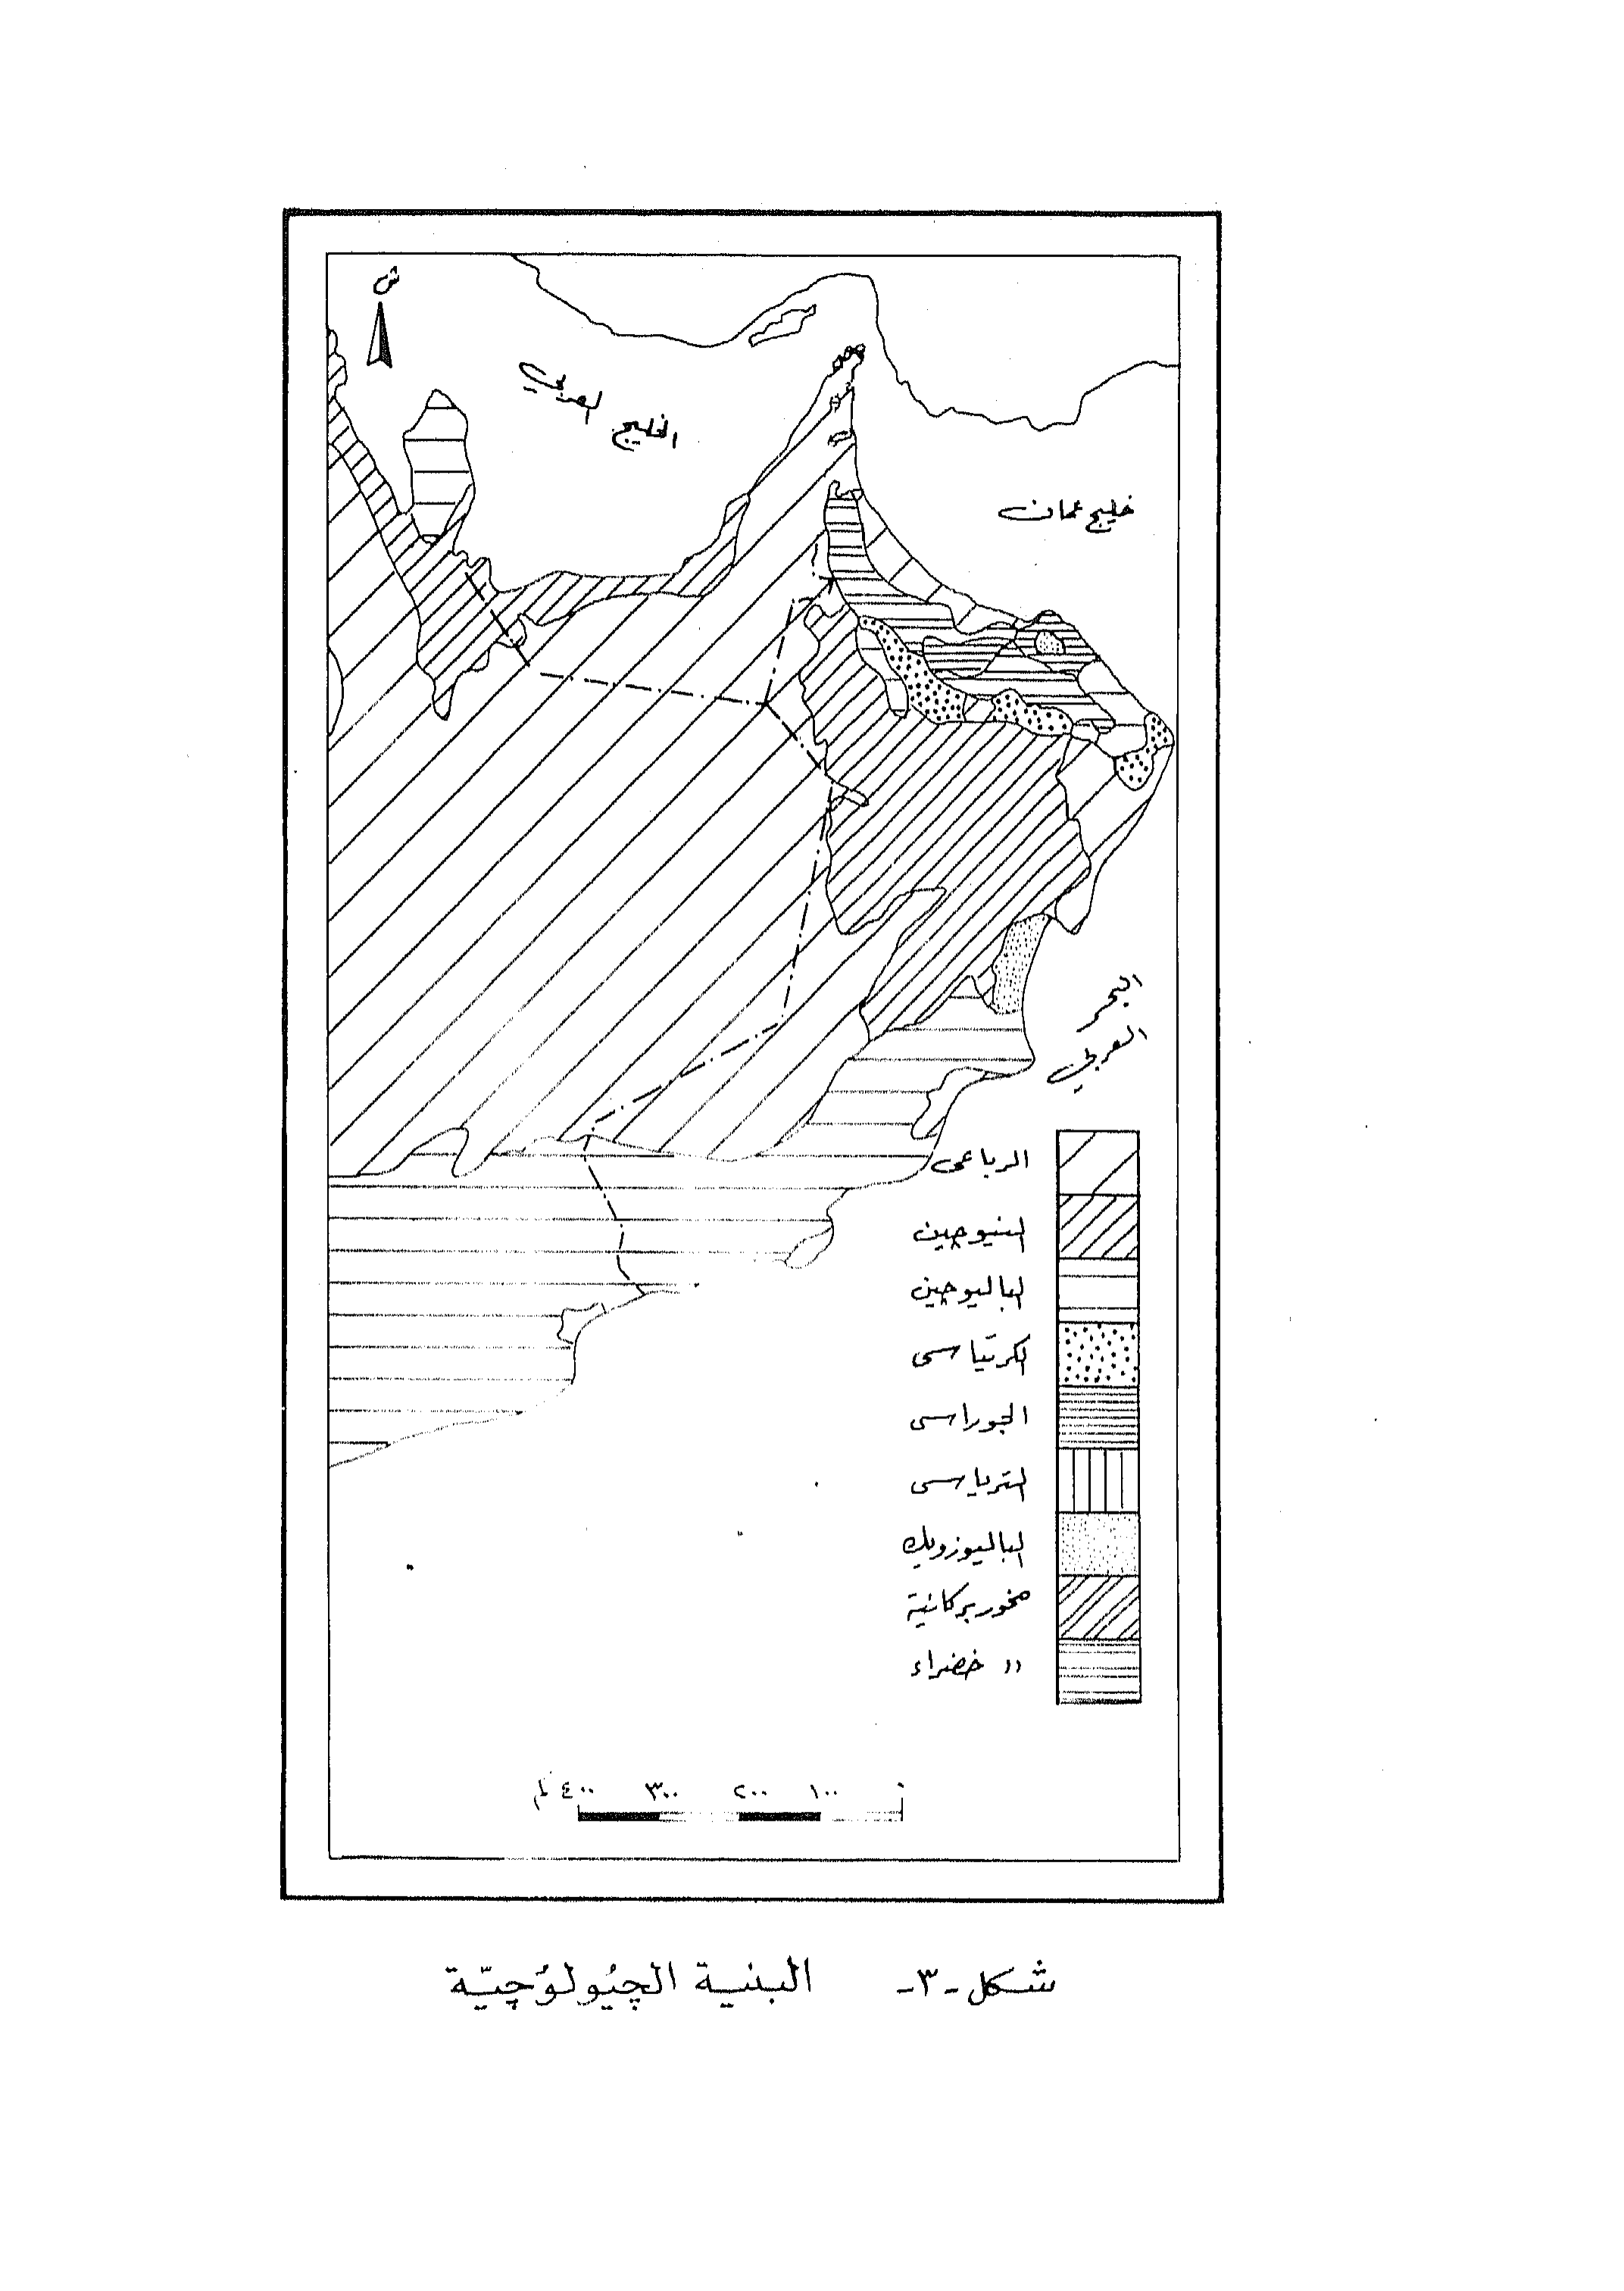 ش
الخليج العربي
خليج عمان
البحر
العربي
الرباعى
النيوچين
الباليوچين
الكرتياسى
الجوراسى
الترياسى
الباليوزويك
صخور بركانية
〃 خضراء
٤٠٠ كم ٣٠٠ ٢٠٠ ١٠٠ ٠
شكل -٣- البنية الچيُولوُچيّة